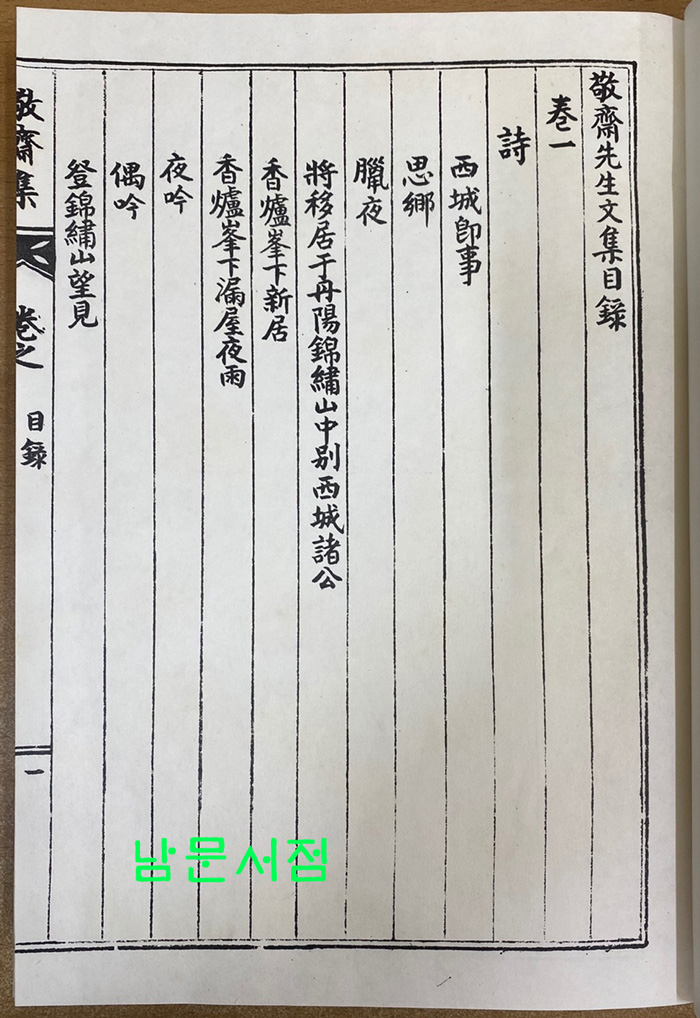 敬齋先生文集目錄
卷一
詩
西城卽事
思鄉
臘夜
將移居于丹陽錦繡山中別西城諸公
香爐峯下新居
香爐峯下漏屋夜雨
夜吟
偶吟
登錦繡山望見
敬齋集 卷之 目錄 一
남문서점